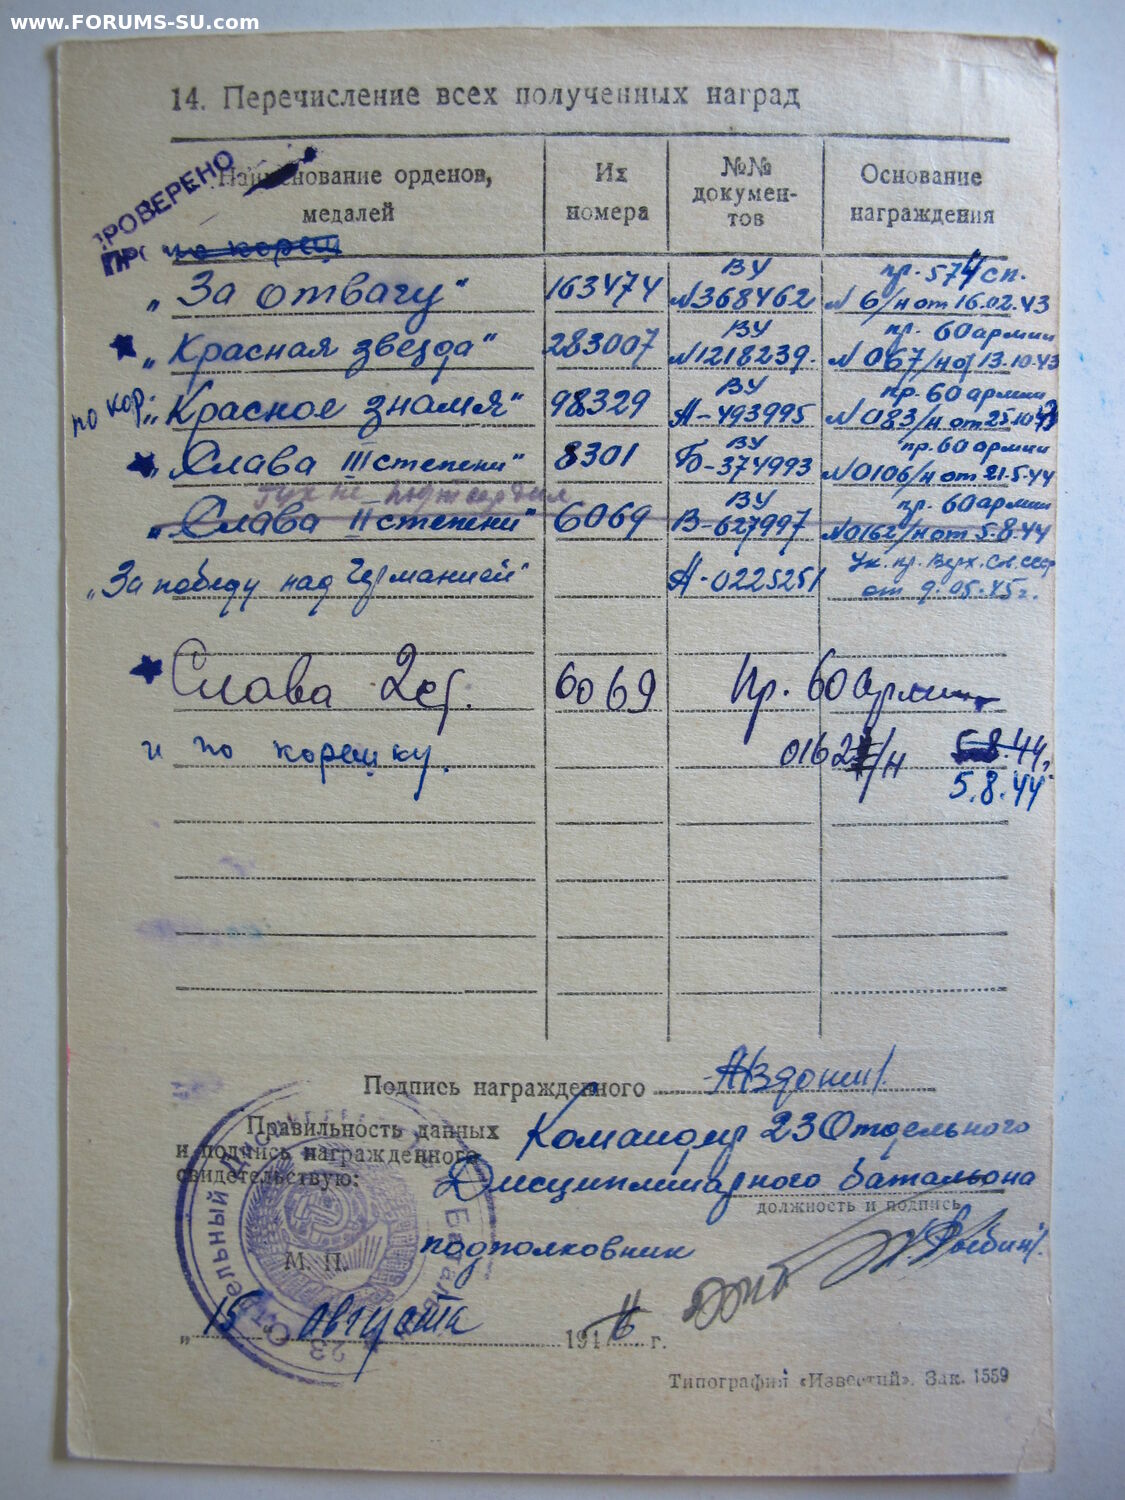 www.FORUMS-SU.com
14. Перечисление всех полученных наград
ПРОВЕРЕНО
Наименование орденов, медалей
Их номера
№№ документов
Основание награждения
по кореш
„За отвагу" 163474 ВУ №368462 пр. 574 сп. № 6/н от 16.02.43
„Красная звезда" 283007 ВУ №1218239. пр. 60 армии № 067/н от 13.10.43
по кор: „Красное знамя" 98329 ВУ А-493995 пр. 60 армии № 083/н от 25.10.43
„Слава III степени" 8301 ВУ Б-374993 пр. 60 армии №0106/н от 21.5.44
ГУК не подтвердил
„Слава II степени" 6069 ВУ В-627997 пр. 60 армии №0162/н от 5.8.44
„За победу над Германией" А-0225251 Ук. пр. Верх. Сов. СССР от 9.05.45г.
Слава 2 ст. 6069 Пр. 60 армии
и по корешку. 0162/н 5.8.44,
5.8.44
Подпись награжденного
Правильность данных
и подпись награжденного
свидетельствую:
Командир 23 Отдельного
Дисциплинарного батальона
должность и подпись
подполковник
М. П.
23 Отдельный
„15" августа 1946 г.
Типография «Известий». Зак. 1559